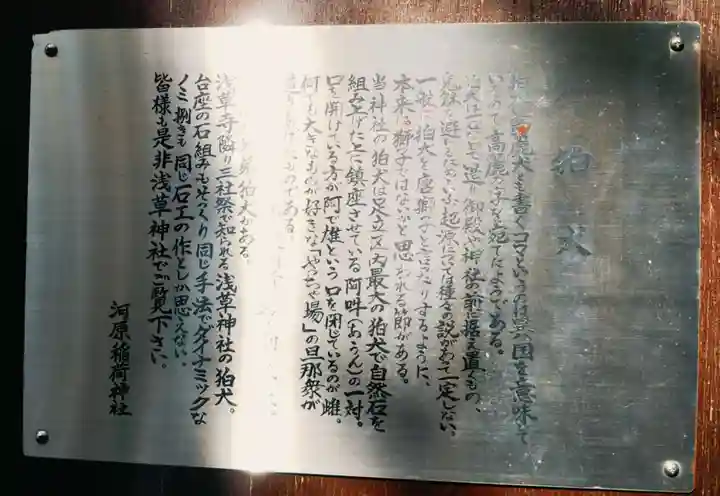 狛犬
狛は高麗犬とも書くコマというのは異国を意味して
いるので高麗の字を宛てたようである。
して造り御殿や神社の前に据え置くもの、
起源については種々の説があって一定しない。
一般に狛犬を唐獅子と
したりするように、
本来は獅子ではないかと思われる節がある。
当神社の狛犬は足立区内最大の狛犬で自然石を
組み上げた上に鎮座させている阿吽(あうん)の一対。
口を開けている方が阿で雄という 口を閉じているのが雌。
何でも大きなものが好きな「やっちゃ場」の旦那衆が
ものである。
狛犬がある。
浅草寺隣り三社祭で知られる浅草神社の狛犬。
台座の石組みもそっくり同じ手法でダイナミックな
ノミ捌きも同じ石工の作としか思えない。
皆様も是非浅草神社でご覧下さい。
河原稲荷神社